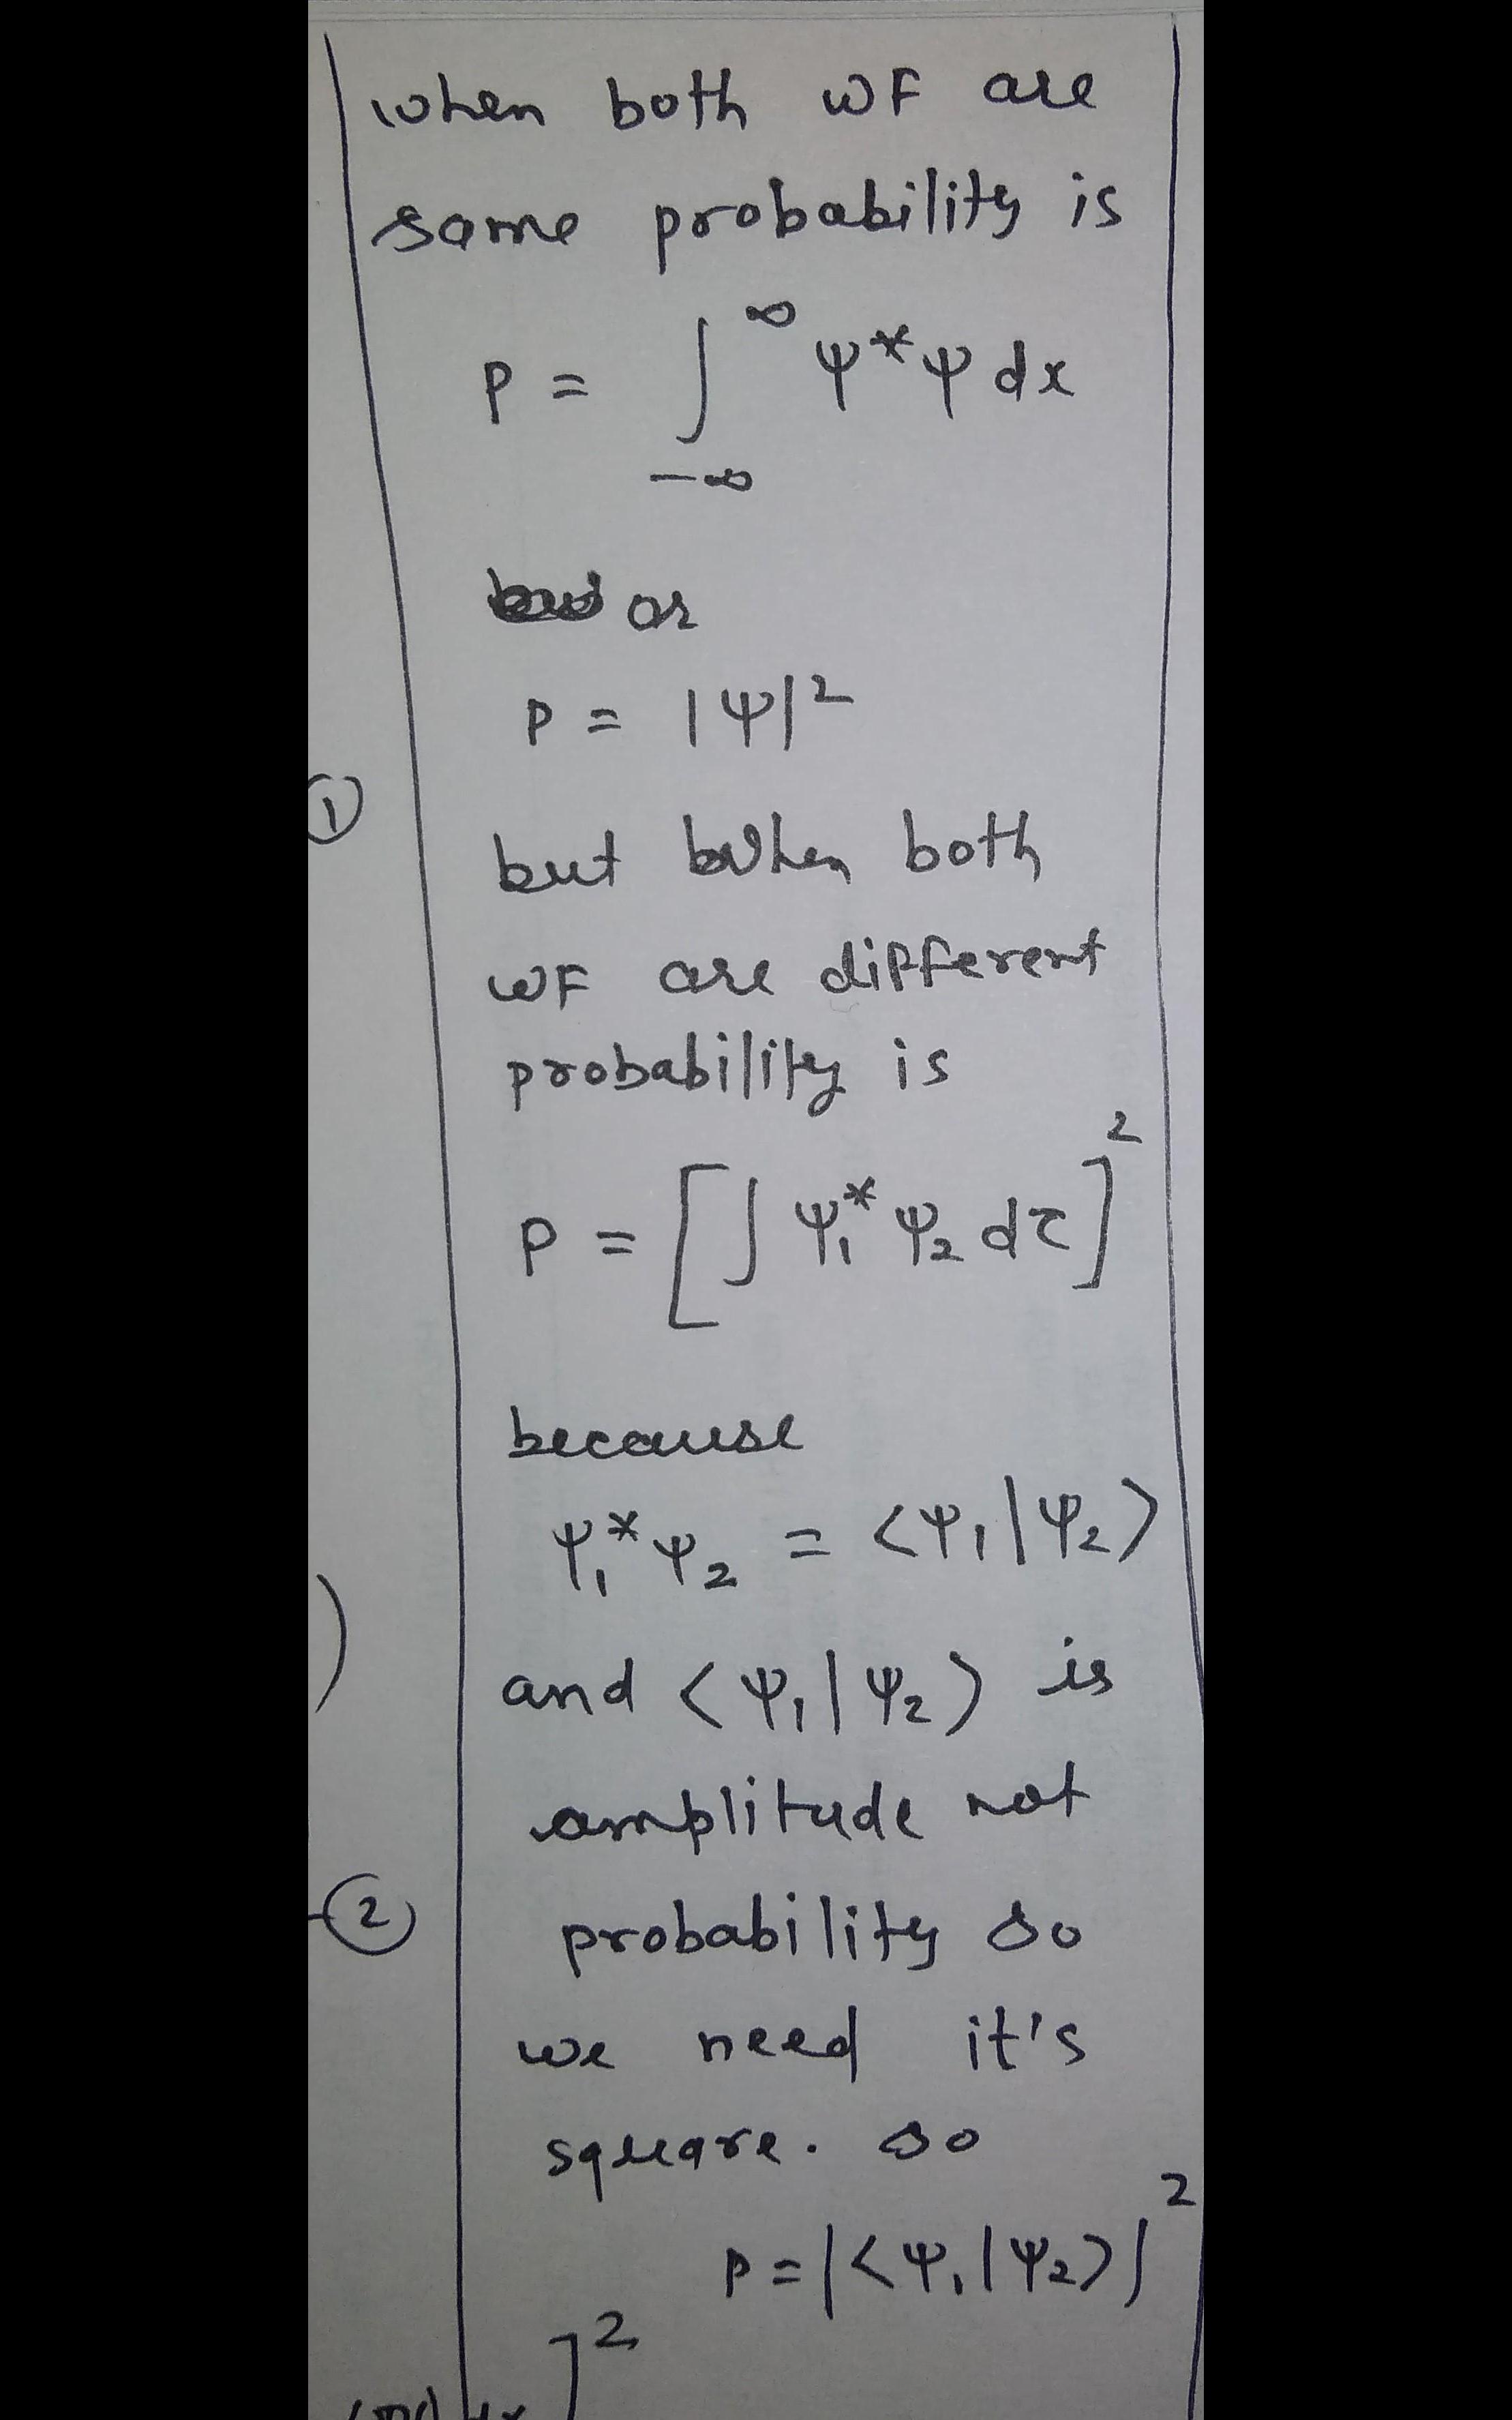 when both WF are
same probability is
P = ∫_{-∞}^{∞} ψ*ψ dx
or
P = |ψ|²
①
but when both
WF are different
probability is
P = [∫ ψ₁* ψ₂ dτ]²
because
ψ₁* ψ₂ = <ψ₁|ψ₂>
and <ψ₁|ψ₂> is
)
amplitude not
② probability so
we need it's
square. so
P = |<ψ₁|ψ₂>|²
]²